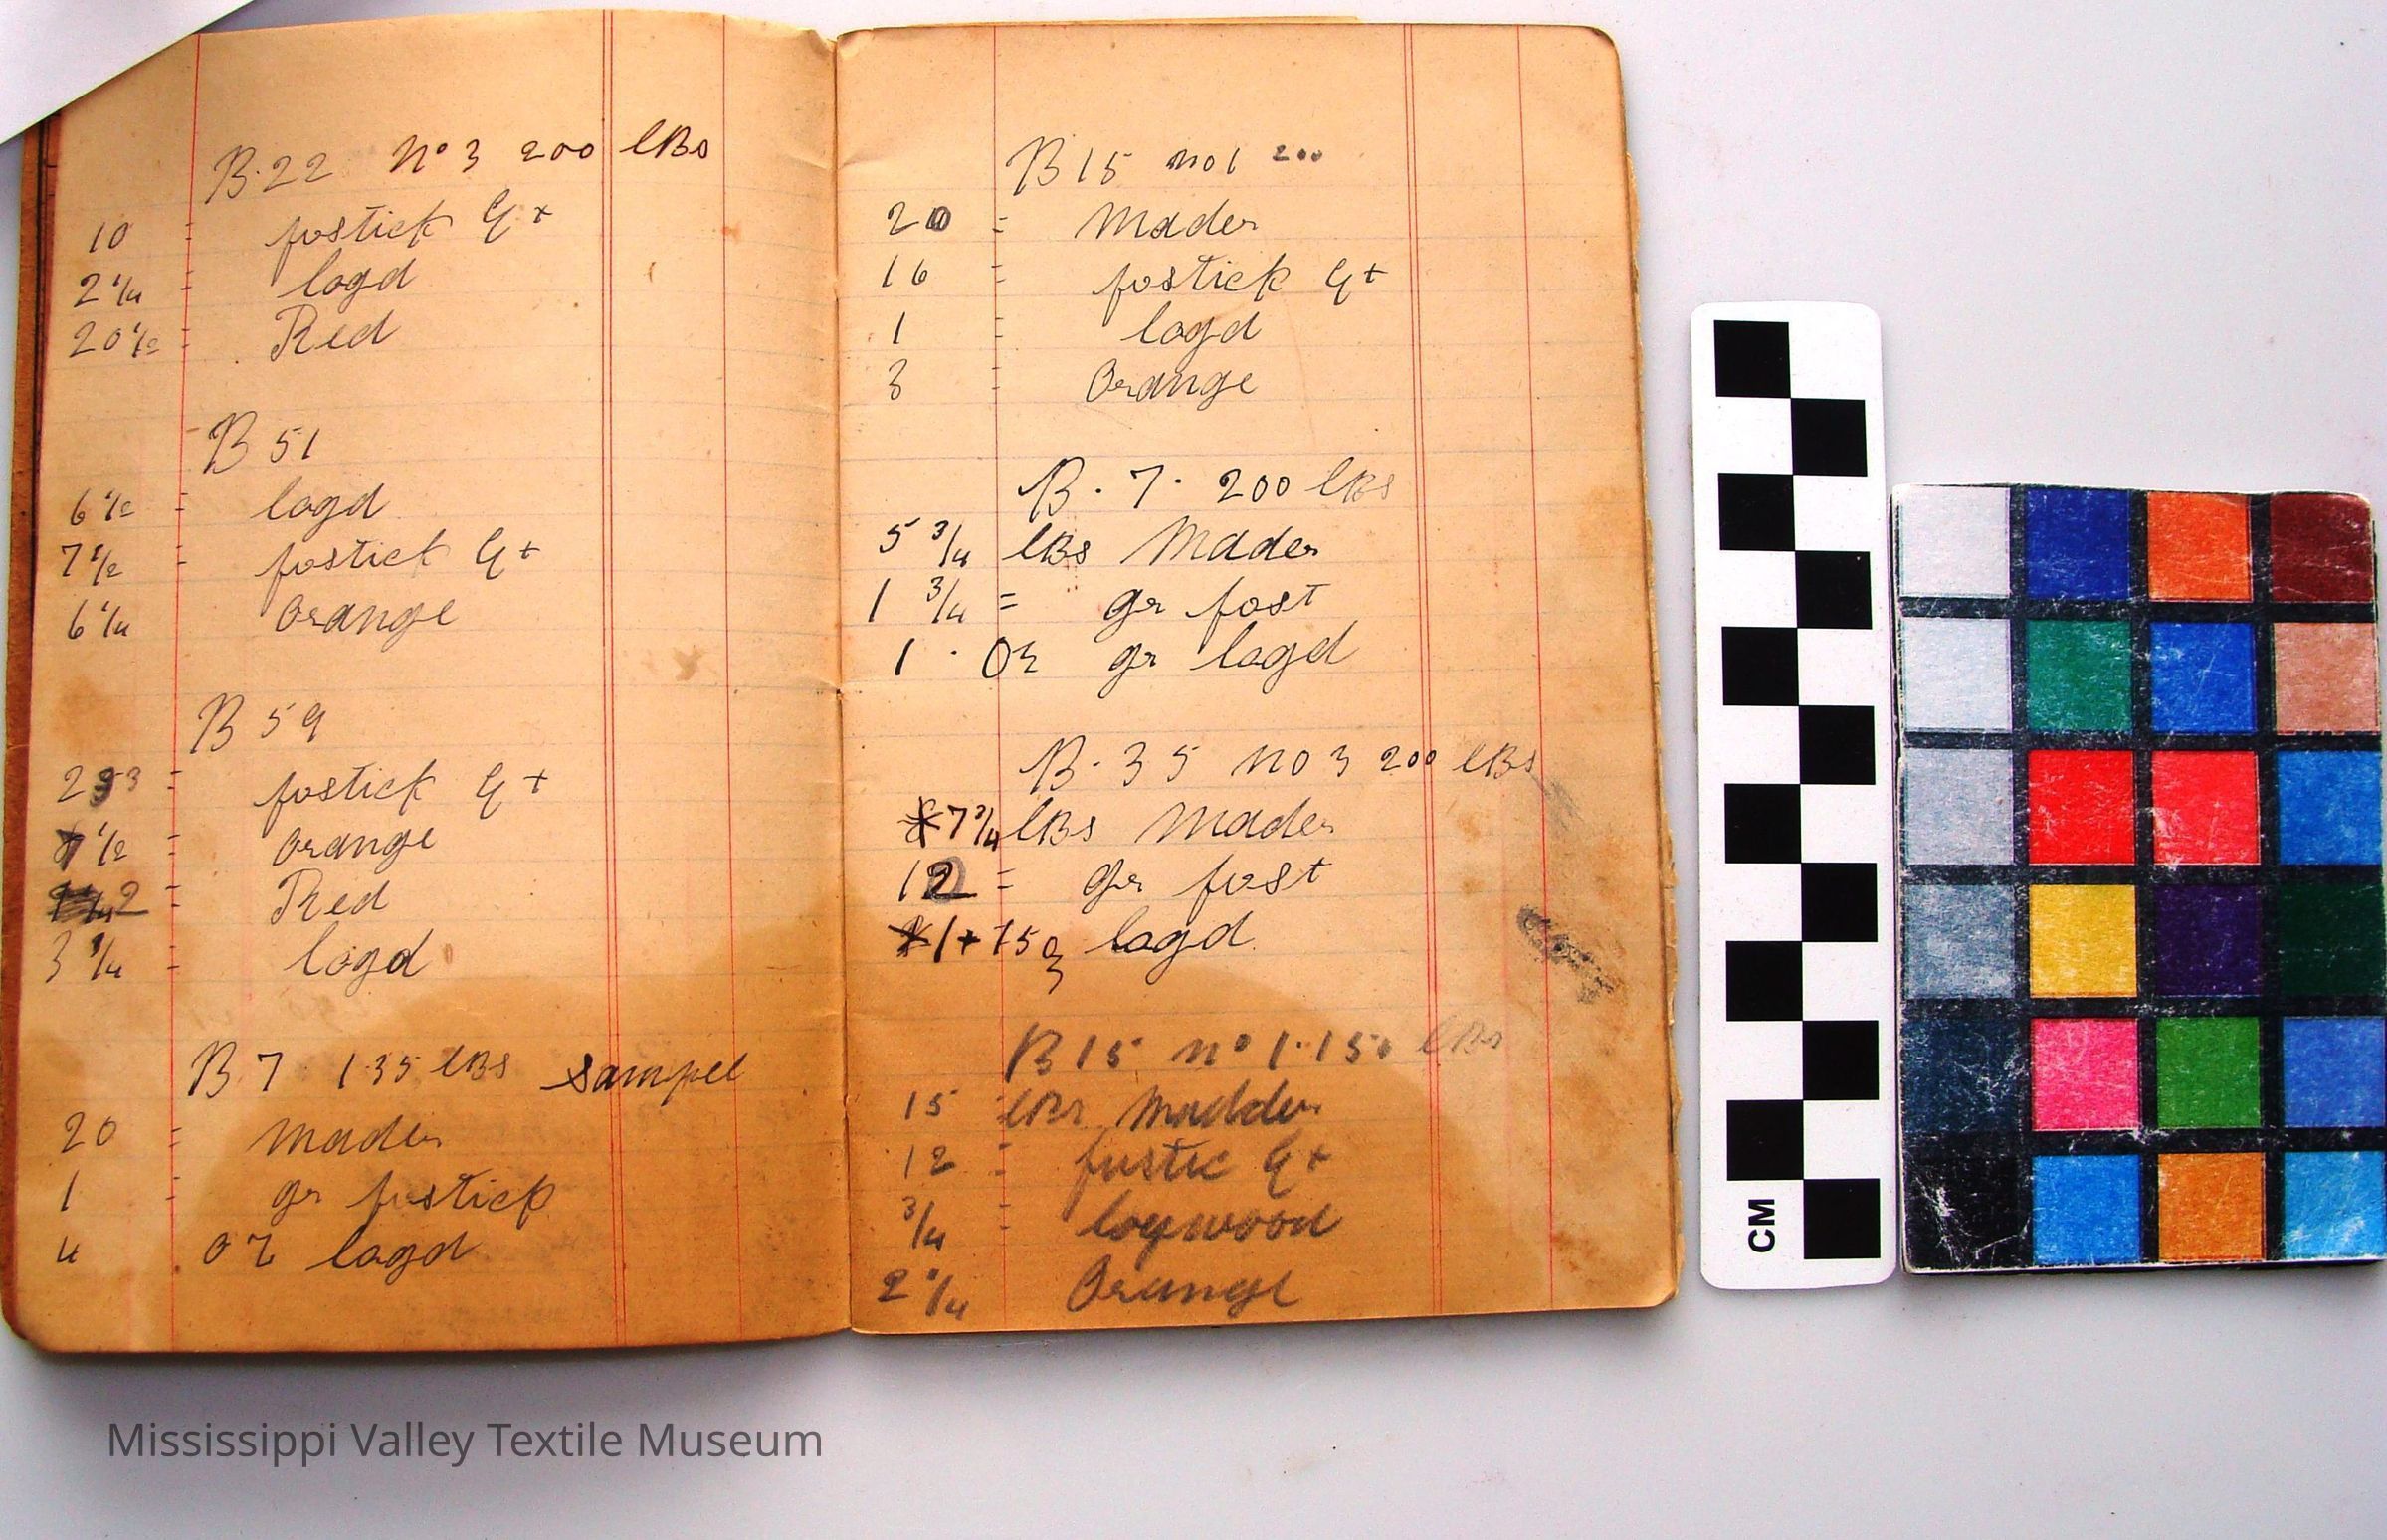 B.22 No 3 200 lBs
10 = fostick Ex
2 1/4 = logd
20 1/2 = Red
B 51
6 1/2 = logd
7 1/2 = fostick Ex
6 1/4 = Orange
B 59
= fostick Ex
1/2 = Orange
2 = Red
3 1/4 = logd
B.7 135 lBs sampel
20 = mader
1 = gr fustick
4 oz logd
B 15 no 1 200
20 = Mader
16 = fostick Ex
1 = logd
3 = Orange
B. 7. 200 lBs
5 3/4 lBs Mader
1 3/4 = gr fost
1 . Oz gr logd
B. 35 no 3 200 lBs
7 3/4 lBs Mader
12 = gr fust
1+15 logd
B 15 no 1.150 lBs
15 lBs Madder
12 = fustic Ex
3/4 = logwood
2 1/4 Orange
CM
Mississippi Valley Textile Museum